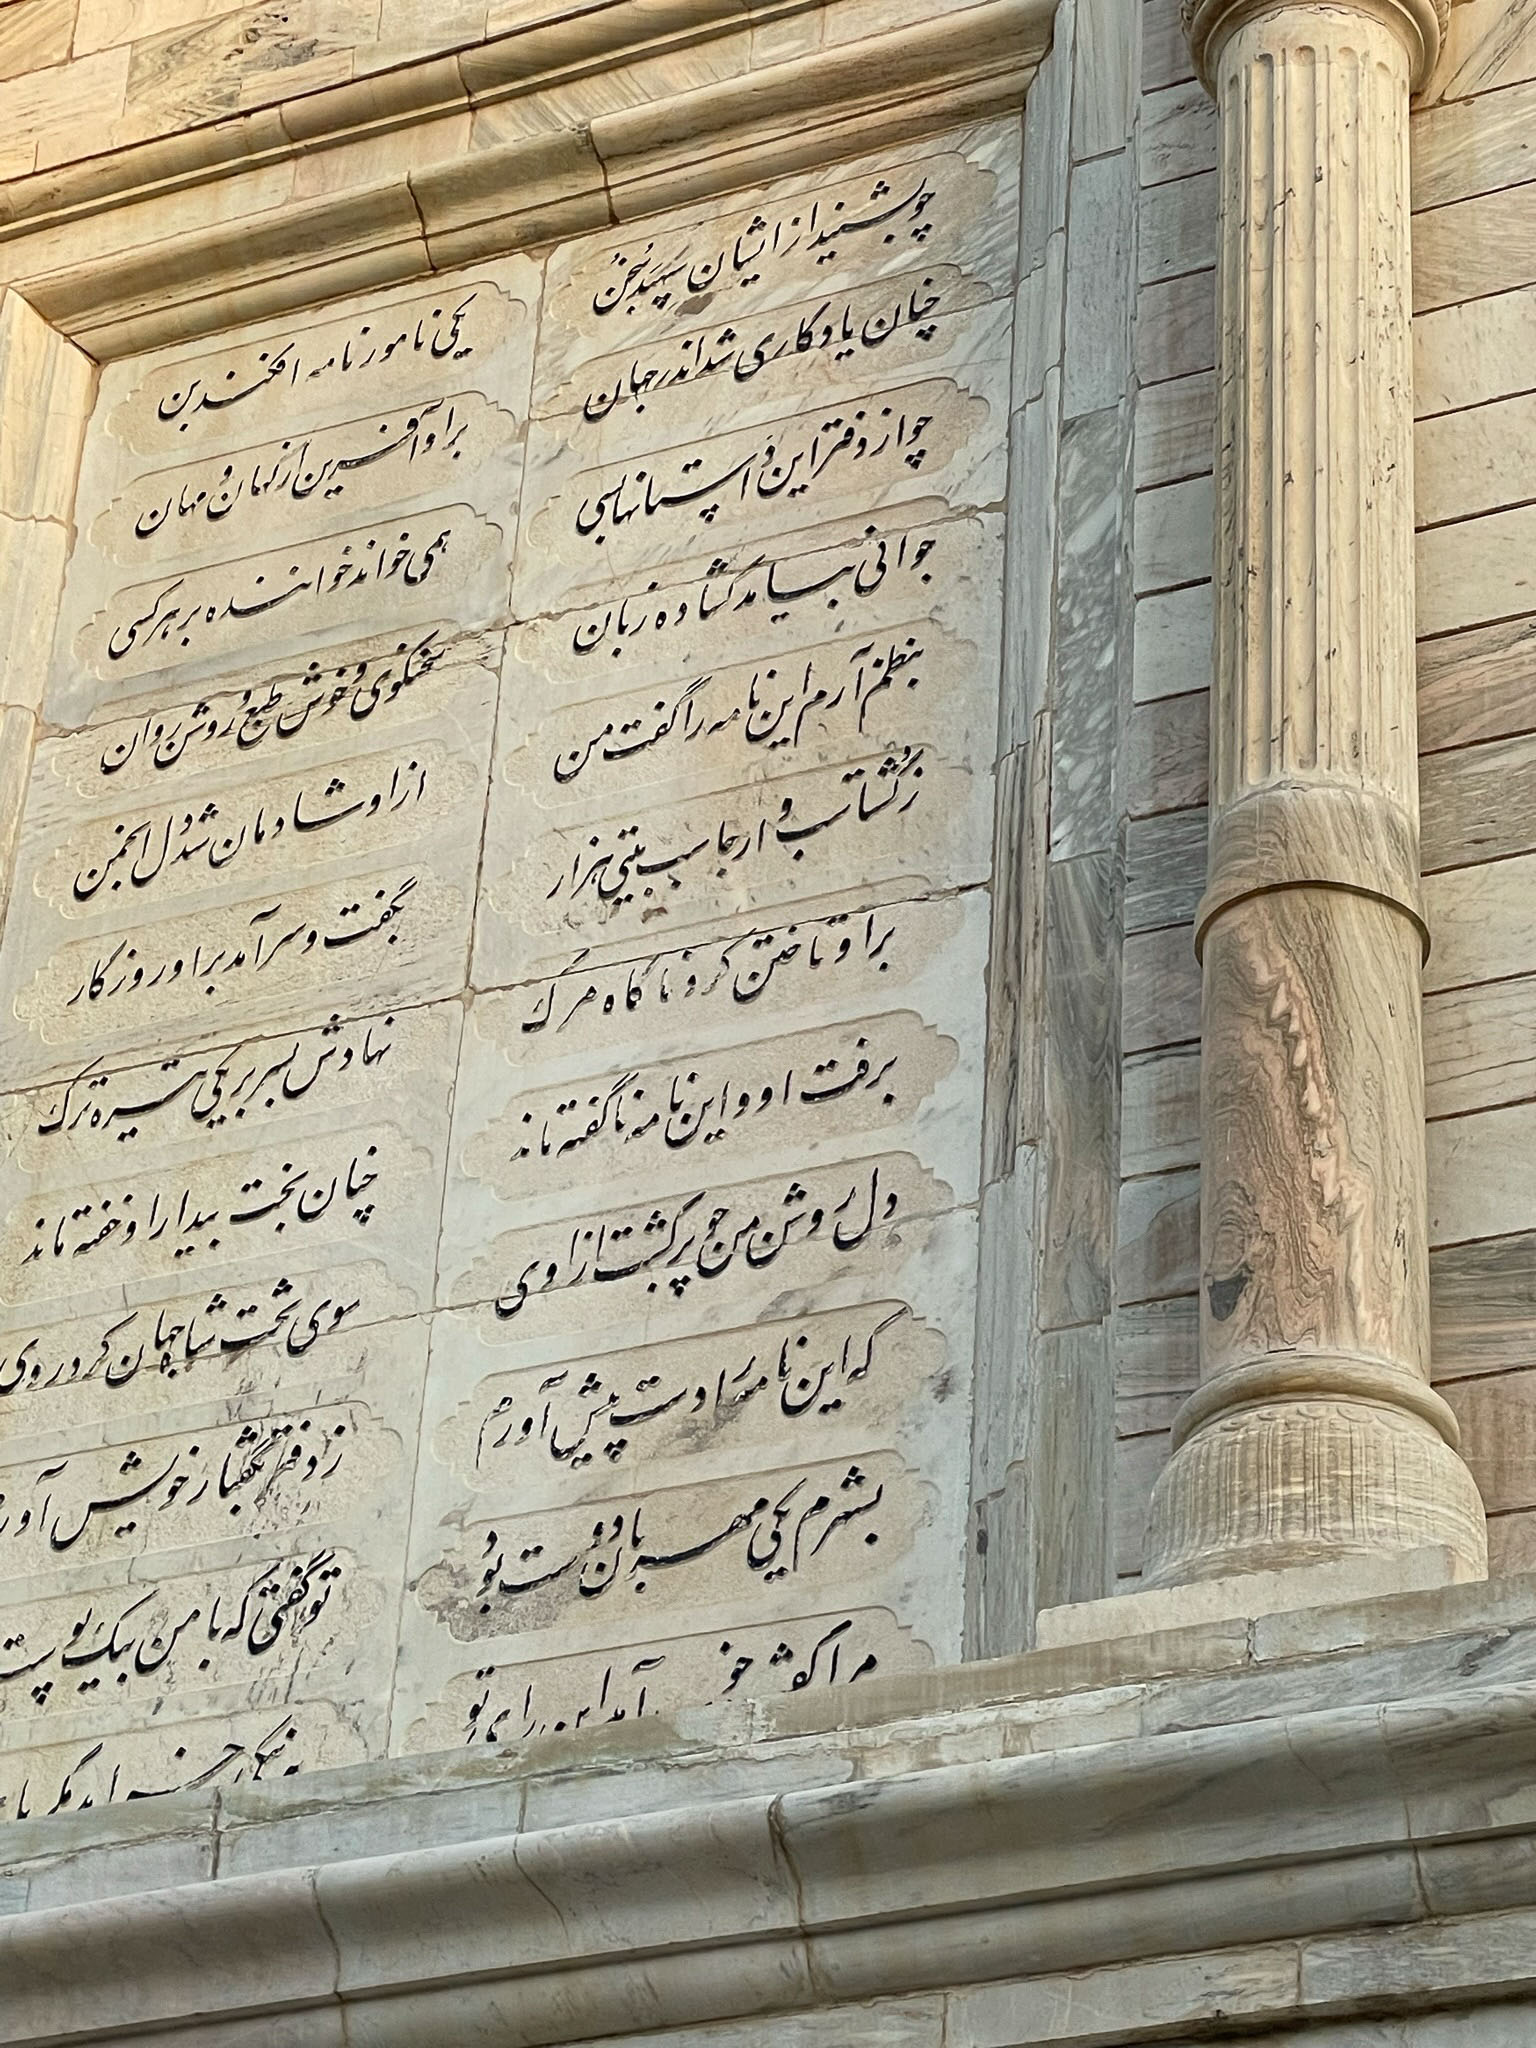 چو بشنید از ایشان سپهبد سخن یکی نامور نامه افکند بن
چنان یادگاری شد اندر جهان بر او آفرین از کهان و مهان
چو از دفتر این داستانها بسی همی خواند خواننده بر هر کسی
جوانی بیامد گشاده زبان سخنگوی و خوش طبع و روشن روان
بنظم آرم این نامه را گفت من از او شادمان شد دل انجمن
ز گشتاسب و ارجاسب بیتی هزار بگفت و سرآمد بر او روزگار
بر او تاختن کرد ناگاه مرگ نهادش بسر بر یکی تیره ترگ
برفت او و این نامه ناگفته ماند چنان بخت بیدار او خفته ماند
دل روشن من چو برگشت از اوی سوی تخت شاه جهان کرد روی
که این نامه را دست پیش آورم ز دفتر بگفتار خویش آورم
بشهرم یکی مهربان دوست بود تو گفتی که با من بیک پوست
مرا گفت خوب آمد این رای تو به نیکی خرامد مگر پای